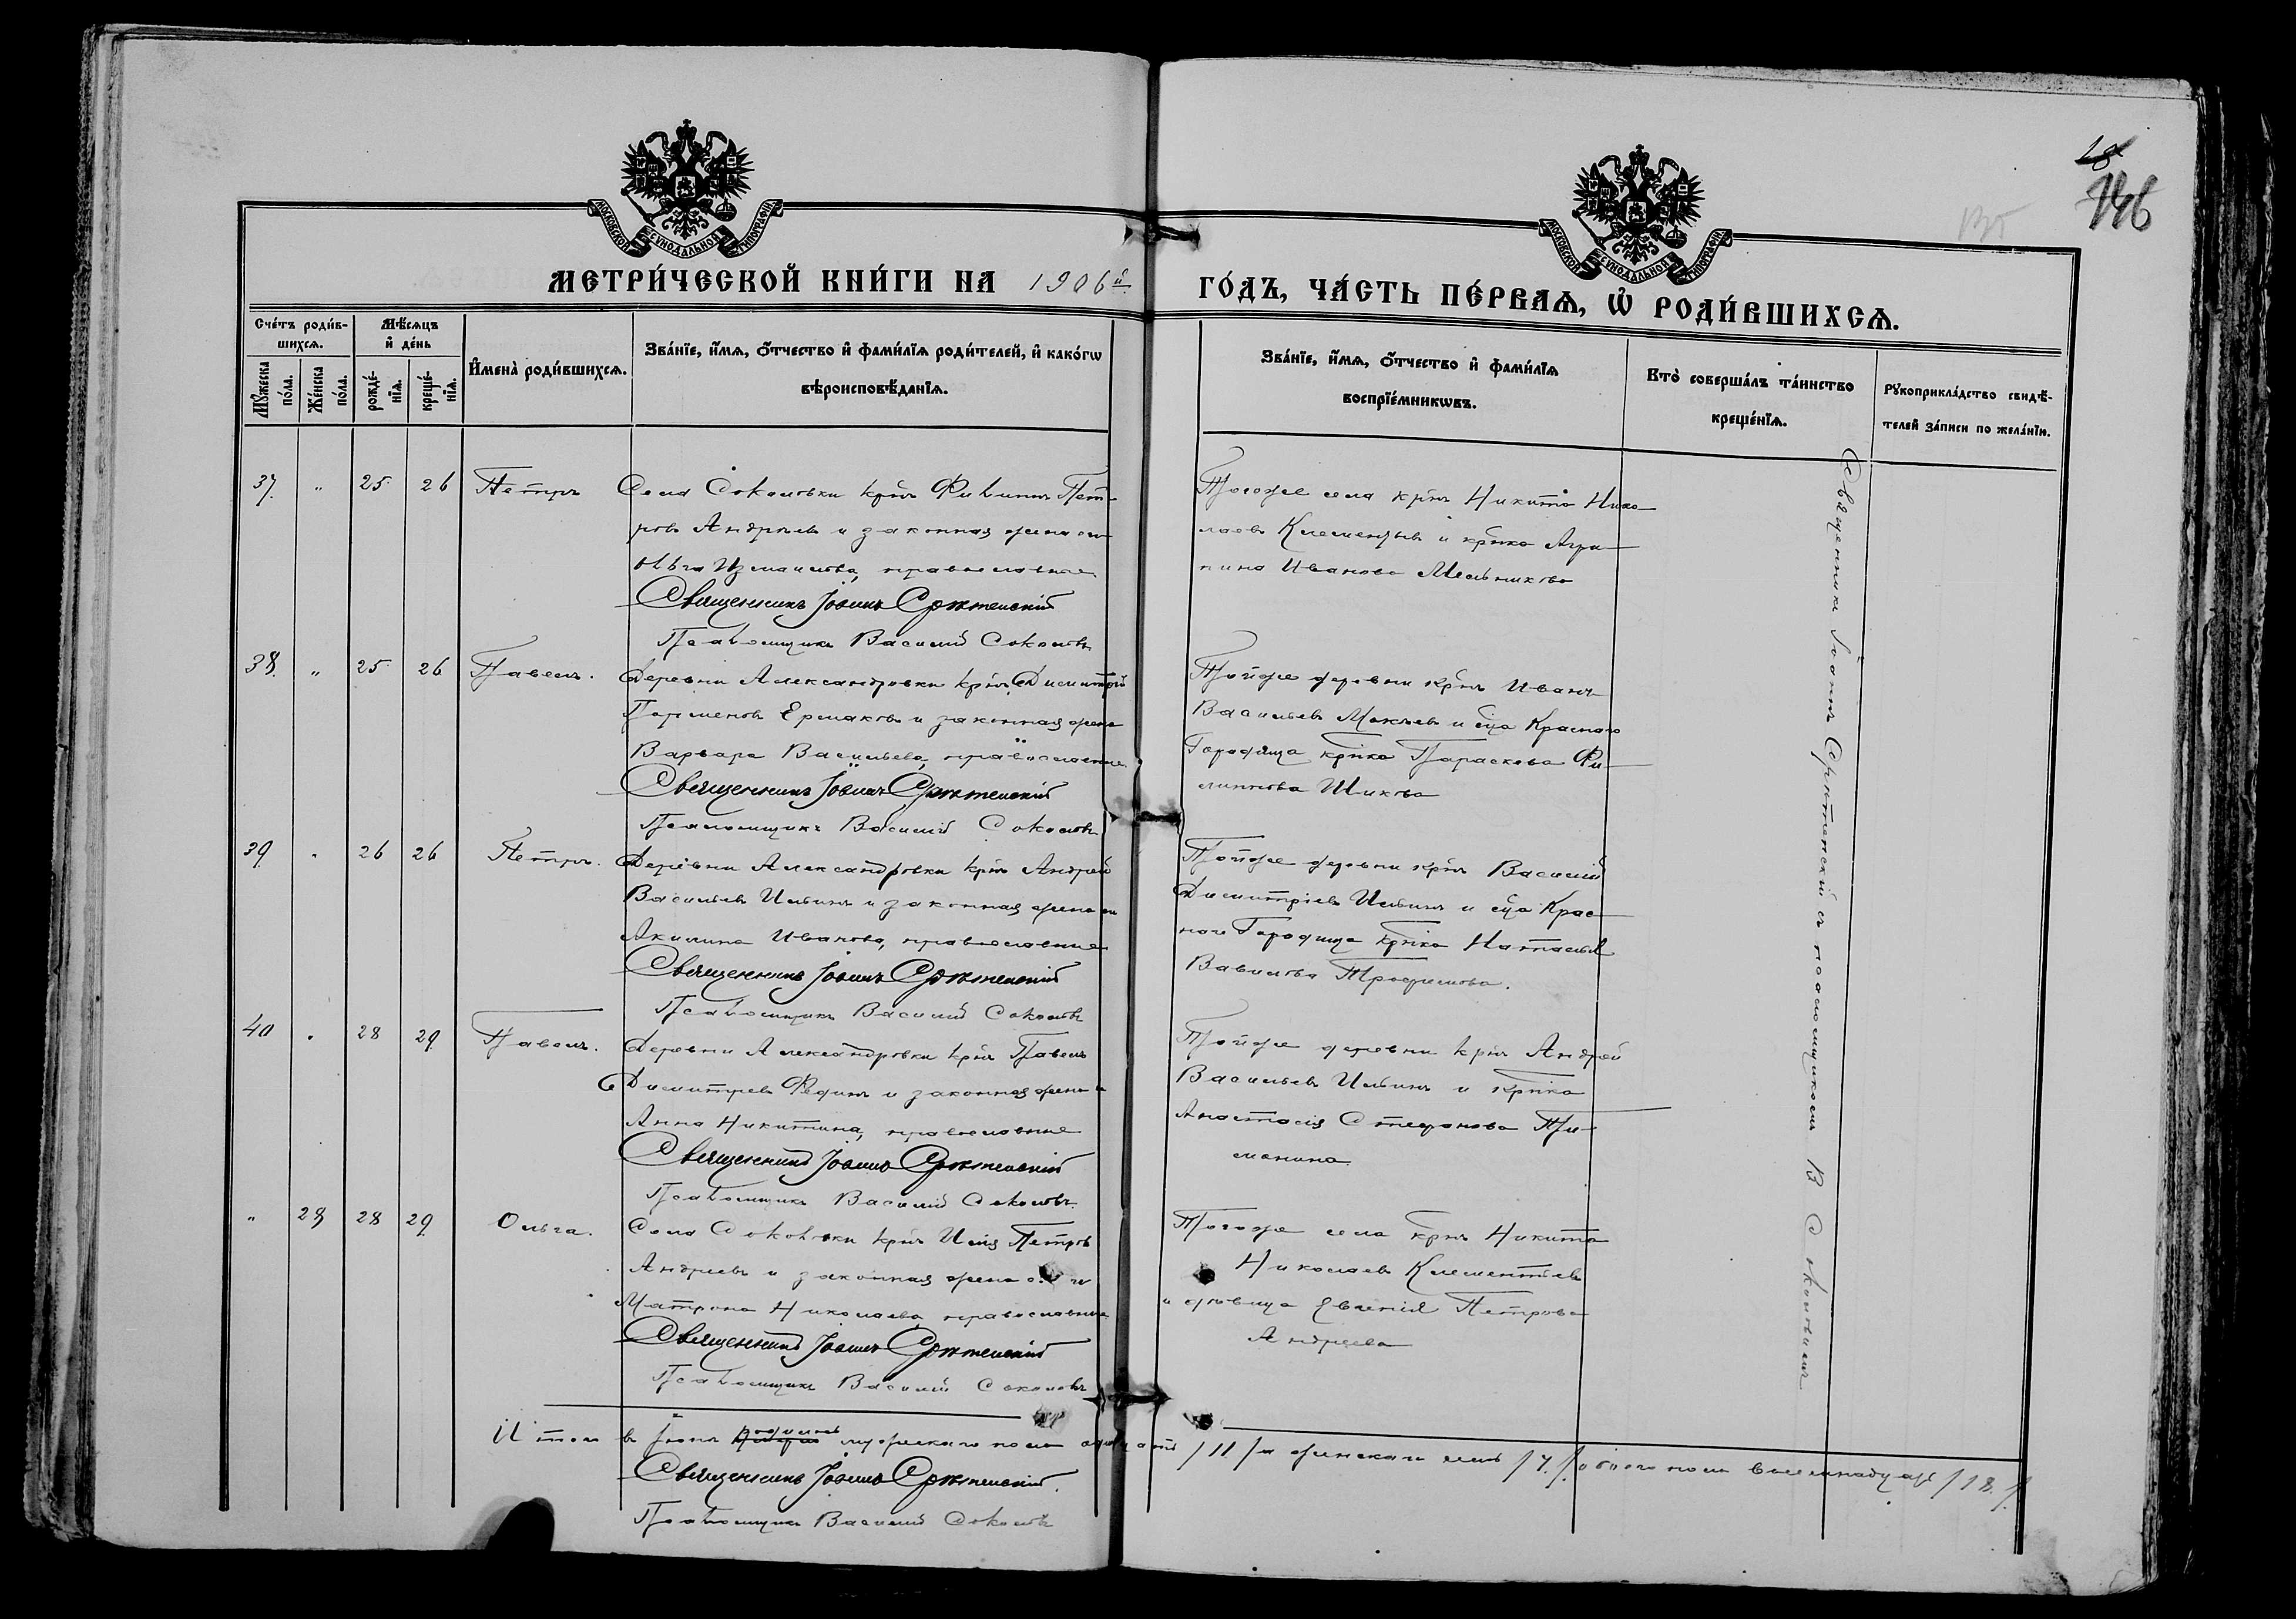 18
146
135
МОСКОВСКОЙ СѴНОДАЛЬНОЙ ТИПОГРАФІИ
МОСКОВСКОЙ СѴНОДАЛЬНОЙ ТИПОГРАФІИ
МЕТРИ́ЧЕСКОЙ КНИ́ГИ НА 1906й
ГО́ДЪ, ЧА́СТЬ ПЕ́РВАѦ, Ѡ҆ РОДИ́ВШИХСѦ.
Сче́тъ роди́в-
шихсѧ.
Мѣ́сѧцъ
и҆ де́нь
Мꙋ́жеска
по́ла.
Же́нска
по́ла.
рожде́-
нїѧ.
креще́-
нїѧ.
И҆мена̀ роди́вшихсѧ.
Зва́нїе, и҆́мѧ, ѻ҆́тчество и҆ фами́лїѧ роди́телей, и҆ како́гѡ
вѣроисповѣ́данїѧ.
Зва́нїе, и҆́мѧ, ѻ҆́тчество и҆ фами́лїѧ
воспрїе́мникѡвъ.
Кто̀ соверша́лъ та́инство
креще́нїѧ.
Рꙋкоприкла́дство свидѣ́-
телей за́писи по жела́нїю.
37. " 25 26 Петръ
Села Соколовки крнъ Филиппъ Пет-
ровъ Андреевъ и законная жена его
Ольга Измаилова, православные
Священникъ Іоаннъ Срѣтенскій
Псаломщикъ Василій Соколовъ
Тогоже села крнъ Никита Нико-
лаевъ Клементьевъ и крнка Агри-
пина Иванова Мельникова
38. " 25 26 Павелъ.
Деревни Александровки крнъ Димитрій
Парменовъ Ермаковъ и законная жена
Варвара Васильева, православные
Священникъ Іоаннъ Срѣтенскій
Псаломщикъ Василій Соколовъ
Тойже деревни крнъ Иванъ
Васильевъ Мокѣевъ и сца Краснаго
Городища крнка Параскева Фи-
липпова Шикова
39. " 26 26 Петръ.
Деревни Александровки крнъ Андрей
Васильевъ Ильинъ и законная жена его
Акилина Иванова, православные
Священникъ Іоаннъ Срѣтенскій
Псаломщикъ Василій Соколовъ
Тойже деревни крнъ Василій
Димитріевъ Ильинъ и сца Крас-
наго Городища крнка Наталья
Вавилова Трофимова.
40 " 28 29 Павелъ.
Деревни Александровки крнъ Павелъ
Димитриевъ Фединъ и законная жена
Анна Никитина, православные
Священникъ Іоаннъ Срѣтенскій
Псаломщикъ Василій Соколовъ.
Тойже деревни крнъ Андрей
Васильевъ Ильинъ и крнка
Анастасія Стефанова При-
" 28 28 29 Ольга.
Села Соколовки крнъ Илія Петровъ
Андреевъ и законная жена его
Матрона Николаева, православные
Священникъ Іоаннъ Срѣтенскій
Псаломщикъ Василій Соколовъ
Тогоже села крнъ Никита
Николаевъ Клементьевъ
и дѣвица Евгенія Петрова
Андреева
Священникъ Іоаннъ Срѣтенскій съ псаломщикомъ В Соколовымъ
Итого въ Іюнѣ родилось мужескаго пола /11/ и женскаго пола /7/, обоего пола восемнадцать /18./
Священникъ Іоаннъ Срѣтенскій.
Псаломщикъ Василій Соколовъ